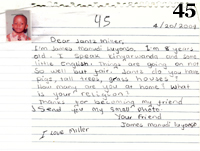 45
45
4/20/2008
Dear Jantz Miser,
I'm James manudi buyonga. I'm 8 years
old. I speak Kinyarwanda and some
little English. Things are going on not
so well but fair. Jantz do you have
pigs, tall trees, grass houses?
How many are you at home? What
is your religion?
Thanks for becoming my friend
I send you my small photo
Your friend
James
Love Miller